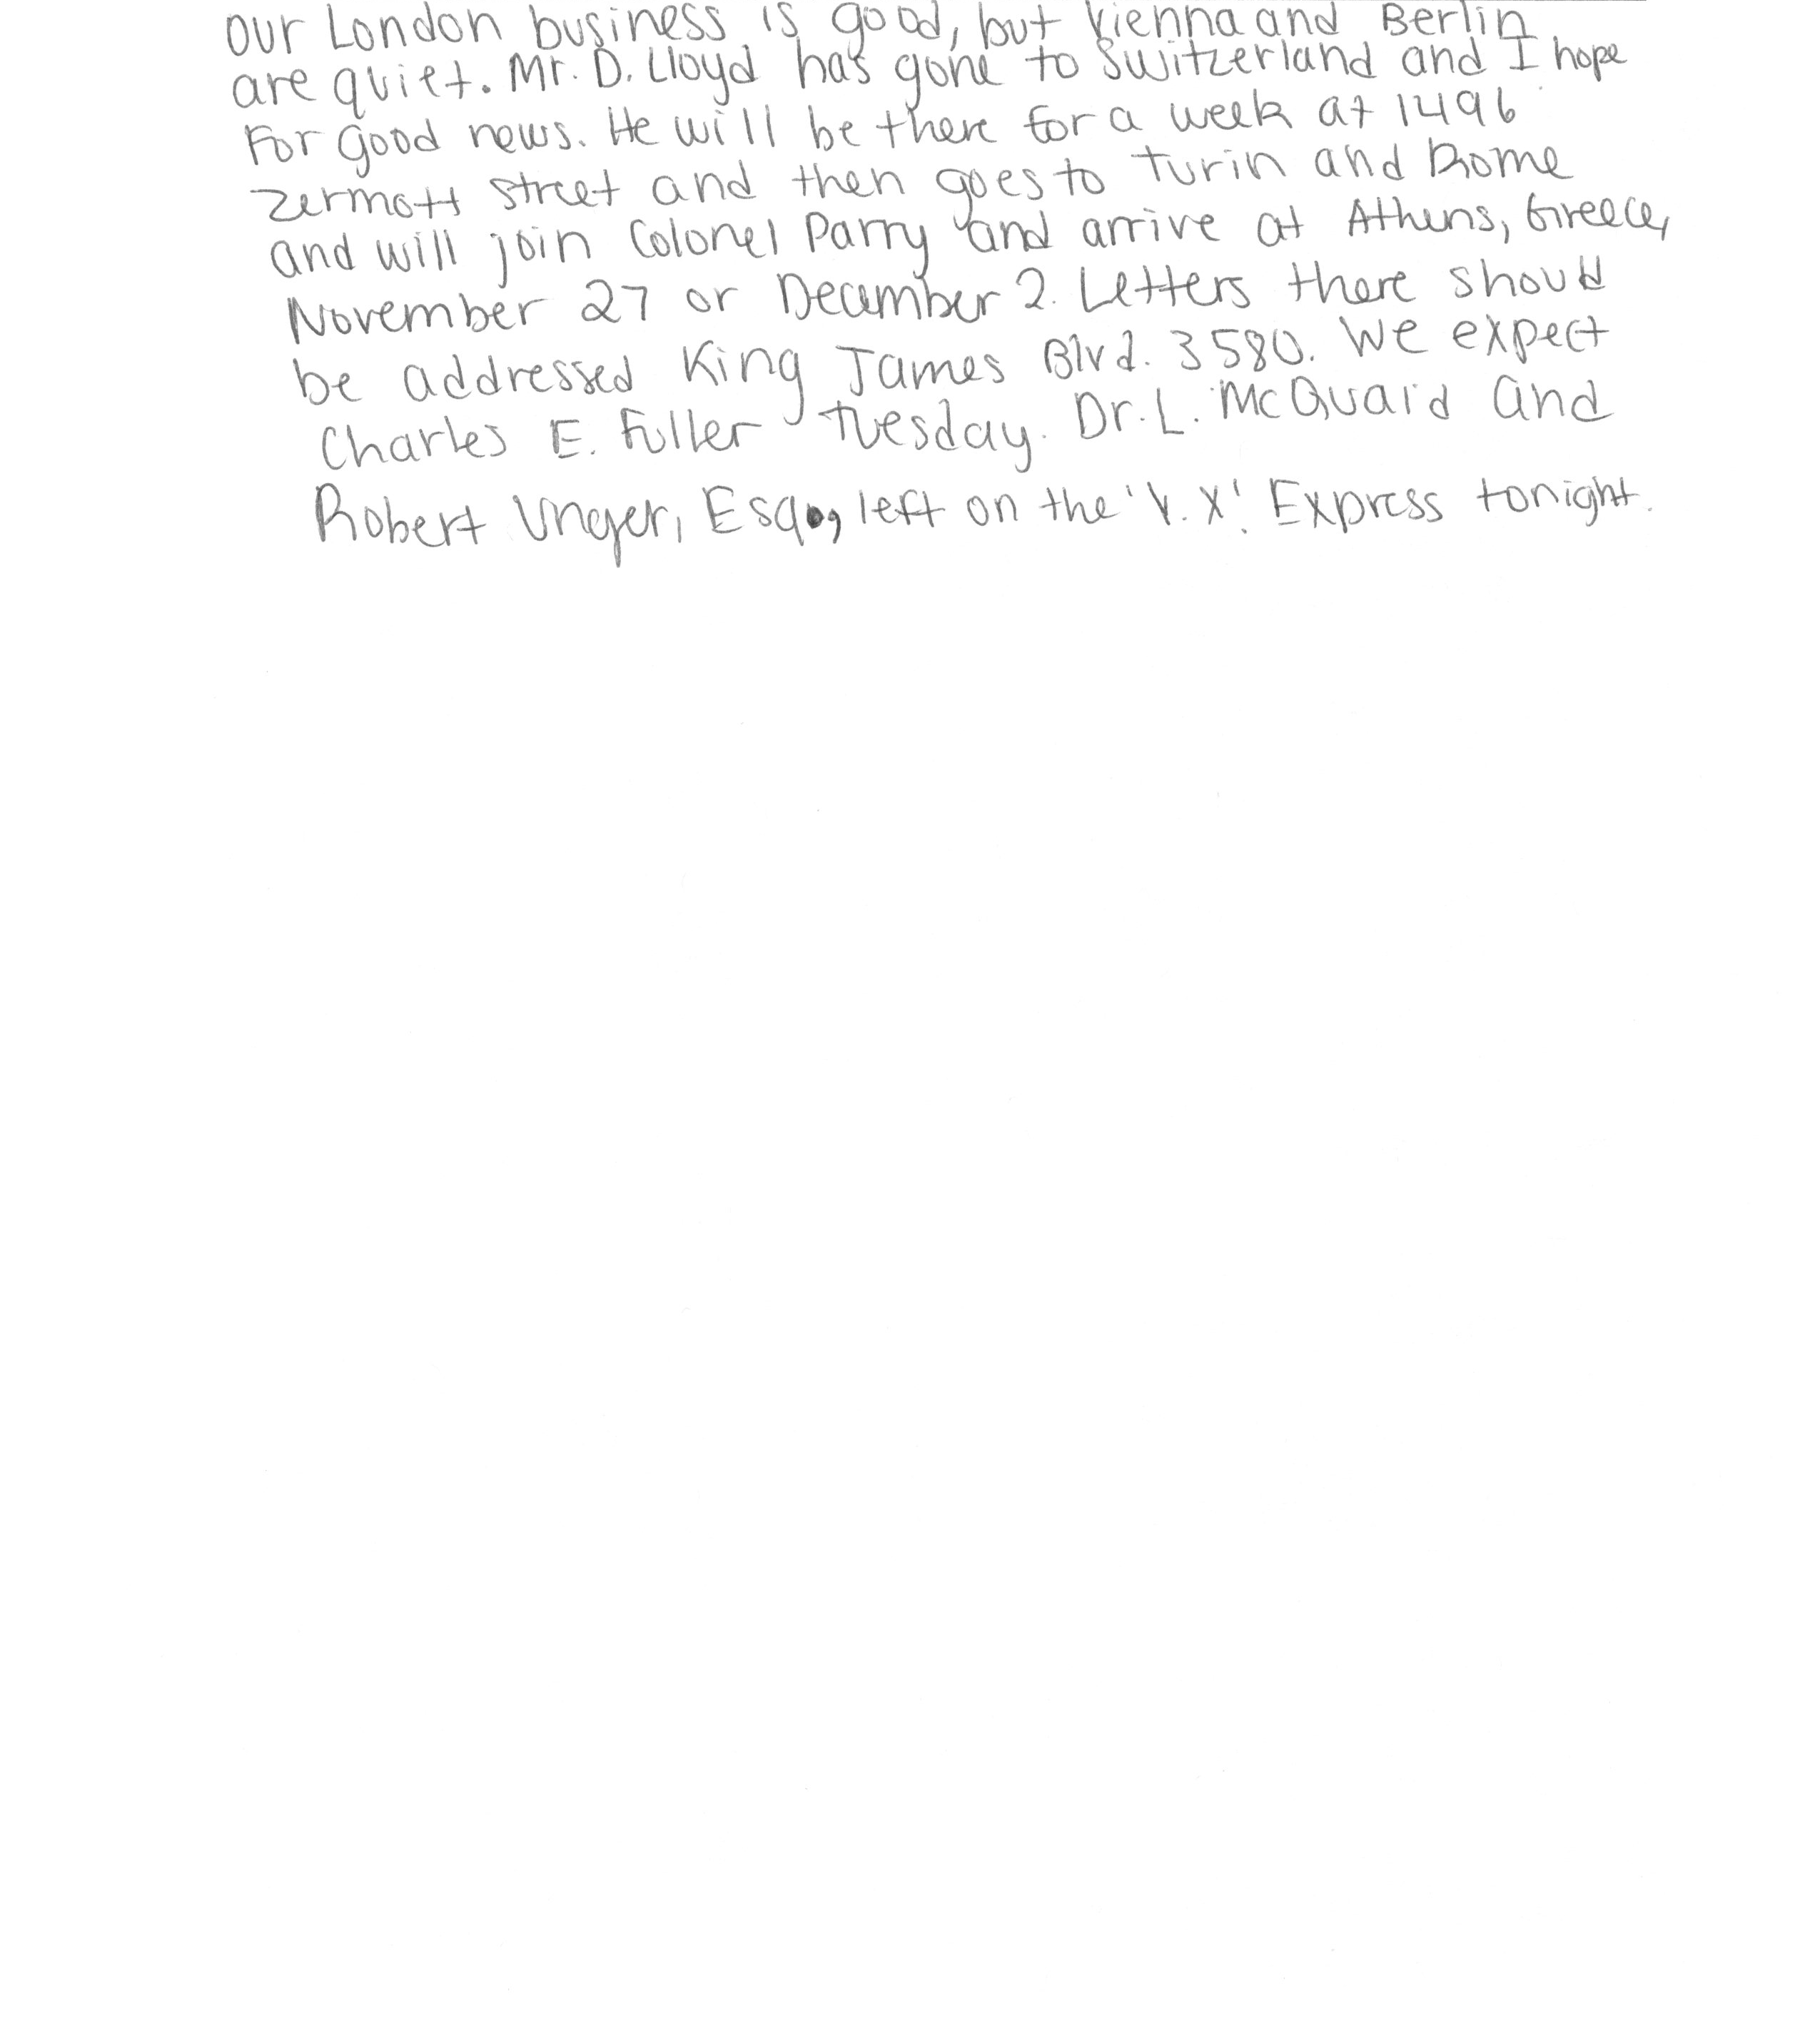 Our London business is good, but Vienna and Berlin
are quiet. Mr. D. Lloyd has gone to Switzerland and I hope
For good news. He will be there for a week at 1496
Zermott Street and then goes to Turin and Rome
and will join Colonel Parry and arrive at Athens, Greece,
November 27 or December 2. Letters there should
be addressed King James Blvd. 3580. We expect
Charles E. Fuller Tuesday. Dr. L. McQuaid and
Robert Unger, Esq., left on the 'V.X.' Express tonight.